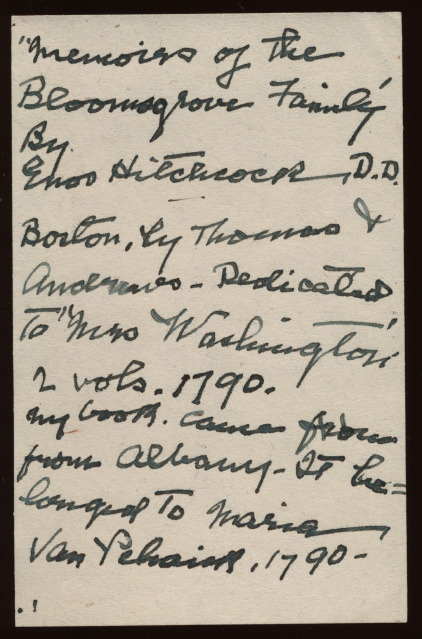 "Memoirs of the
Bloomsgrove Family"
By
Enos Hitchcock, D.D.
Boston, by Thomas &
Andrews - Dedicated
To "Mrs Washington"
2 vols. 1790.
my book. came from
from Albany - It be=
longed To Maria
Van Schaick, 1790 -